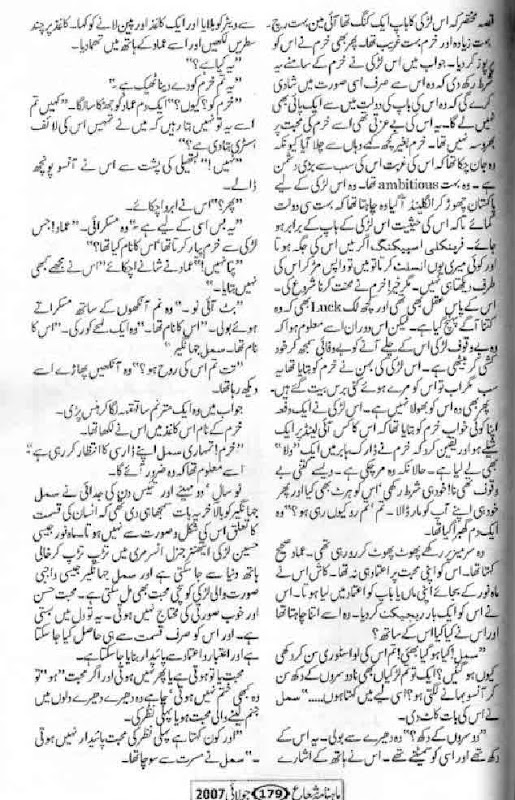 قصہ مختصر کہ اس لڑکی کا باپ ایک کنگ تھا آئی مین بہت رچ۔
بہت زیادہ اور خرم بہت غریب تھا۔ پھر بھی خرم نے اس کو
پرپوز کر دیا۔ جواب میں اس لڑکی نے خرم کے سامنے یہ
شرط رکھ دی کہ وہ اس سے صرف اسی صورت میں شادی
کرے گی کہ وہ اس کی باپ کی دولت میں سے ایک پائی بھی
نہیں لے گا۔ یہ اس کی بے عزتی تھی اسے خرم کی محبت پر
بھروسہ نہیں تھا۔ خرم بغیر کچھ کہے وہاں سے چلا آیا کیونکہ
وہ جان چکا تھا کہ اس کی غربت اس کی سب سے بڑی دشمن
ہے۔ وہ بہت ambitious تھا۔ وہ اس لڑکی کے لیے
پاکستان چھوڑ کر انگلینڈ آ گیا وہ چاہتا تھا کہ بہت سی دولت
کمائے تاکہ اس کی حیثیت اس لڑکی کے باپ کے برابر ہو
جائے۔ فرینکلی اسپیکنگ اگر میں اس کی جگہ ہوتا
اور کوئی میری یوں انسلٹ کرتا تو میں تو واپس مڑ کر اس کی
طرف دیکھتا ہی نہیں۔ مگر خیر! خرم نے محنت کرنا شروع کی۔
اس کے پاس عقل بھی تھی اور کچھ لک Luck بھی کہ وہ
کتنا آگے پہنچ گیا ہے۔ لیکن اس دوران اسے معلوم ہوا کہ
وہ بے وقوف لڑکی اس کے چلے آنے کو بے وفائی سمجھ کر خود
کشی کر بیٹھی ہے۔ اس لڑکی کی بہن نے خرم کو بتایا تھا یہ
سب۔ مگر اب تو اس کو مرے ہوئے کئی برس بیت گئے ہیں۔
پھر بھی وہ اس کو بھولا نہیں ہے۔ اس لڑکی نے ایک دفعہ
اپنا کوئی خواب خرم کو بتایا تھا کہ اس کا کس آئی لینڈ پر ایک
بنگلہ ہو اور یقین کرو کہ خرم نے ڈارک ہاربر میں ایک "ولا"
بھی لے لیا ہے۔ حالانکہ وہ مر چکی ہے۔ ویسے کتنی بے
وقوف تھی نا! خود ہی شرط رکھی اس کو ہرٹ بھی کیا اور پھر
خود ہی اپنے آپ کو مار ڈالا۔ تم، تم رو کیوں رہی ہو؟" وہ
ایک دم گھبرا گیا تھا۔
وہ سر میز پر رکھے پھوٹ پھوٹ کر رو رہی تھی۔ عماد صحیح
کہتا تھا۔ اس کو اپنی محبت پر اعتماد ہی نہ تھا۔ کاش اس نے
ماہ نور کے بجائے اپنی ماں یا باپ کو اعتماد میں لیا ہوتا۔ اس
نے اس کو ایک بار ریجیکٹ کر دیا۔ وہ اسے اتنا چاہتا تھا
اور اس نے کیا کیا اس کے ساتھ؟
"سمل! کیا ہو گیا بھئی! تم اس کی لو اسٹوری سن کر دکھی
کیوں ہو گئیں؟ ایک تو تم لڑکیاں بھی نا دوسروں کے دکھ سن
کر آنسو بہانے لگتی ہو؟ اسی لیے میں کہتا ہوں....." سمل
نے اس کی بات کاٹ دی۔
"دوسروں کے دکھ؟" وہ دھیرے سے بولی۔ یہ اس کے
دکھ تھے اور اسی کو سمیٹنے تھے۔ اس نے ہاتھ کے اشارے
سے ویٹر کو بلایا اور ایک کاغذ اور پین لانے کو کہا۔ کاغذ پر چند
سطریں لکھیں اور اسے عماد کے ہاتھ میں تھما دیا۔
"یہ کیا ہے؟"
"یہ تم خرم کو دے دینا ٹھیک ہے۔"
"خرم کو؟ کیوں؟" ایک دم عماد کو جھٹکا سا لگا۔ "کہیں تم
اسے یہ تو نہیں بتا رہیں کہ میں نے تمہیں اس کی لائف
اسٹری بتا دی ہے؟"
"نہیں!" ہتھیلی کی پشت سے اس نے آنسو پونچھ
ڈالے۔
"پھر؟" اس نے ابرو اچکائے۔
"یہ بس اسی کے لیے ہے" وہ مسکرائی۔ "عماد! جس
لڑکی سے خرم پیار کرتا تھا اس کا نام کیا تھا؟"
"پتا نہیں!" عماد نے شانے اچکائے "اس نے مجھے کبھی
نہیں بتایا۔"
"بٹ آئی نو۔" وہ نم آنکھوں کے ساتھ مسکراتے
ہوئے بولی۔ "اس کا نام تھا۔" وہ ایک لمحے کو رکی۔ "اس کا
نام تھا۔ سمل جہانگیر"
"تت تم اس کی روح ہو؟" وہ آنکھیں پھاڑے اسے
دیکھ رہا تھا۔
جواب میں وہ ایک مترنم سا قہقہہ لگا کر ہنس پڑی۔
خرم کے نام اس کاغذ میں اس نے لکھا تھا۔
"خرم! تمہاری سمل اپنے ڈاری کا انتظار کر رہی ہے۔"
اسے معلوم تھا کہ وہ ضرور آئے گا۔
نو سال، دو مہینے اور تئیس دن کی جدائی نے سمل
جہانگیر کو بالآخر یہ بات سمجھا دی تھی کہ انسان کی قسمت
کا تعلق اس کی شکل و صورت سے نہیں ہوتا۔ ماہ نور جیسی
حسین لڑکی ایجنٹر جنرل انسرمری میں تڑپ تڑپ کر خالی
ہاتھ دنیا سے جا سکتی ہے اور سمل جہانگیر جیسی واجبی
صورت والی لڑکی کو سچی محبت بھی مل سکتی ہے۔ محبت حسن
اور خوب صورتی کی محتاج نہیں ہوتی۔ یہ تو دل میں بستی
ہے۔ اور اس کو صرف قسمت سے ہی حاصل کیا جا سکتا
ہے اور اعتبار و اعتماد سے پائیدار بنایا جا سکتا ہے۔
محبت یا تو ہوتی ہے یا پھر نہیں ہوتی اور اگر محبت "ہو" تو
وہ کبھی ختم نہیں ہوتی چاہے وہ دھیرے دھیرے دلوں میں
جنم لینے والی محبت ہو یا پہلی نظر کی۔
"اور کون کہتا ہے پہلی نظر کی محبت پائیدار نہیں ہوتی
۔" سمل نے مسرت سے سوچا تھا۔
ماہنامہ شعاع 179 جولائی 2007